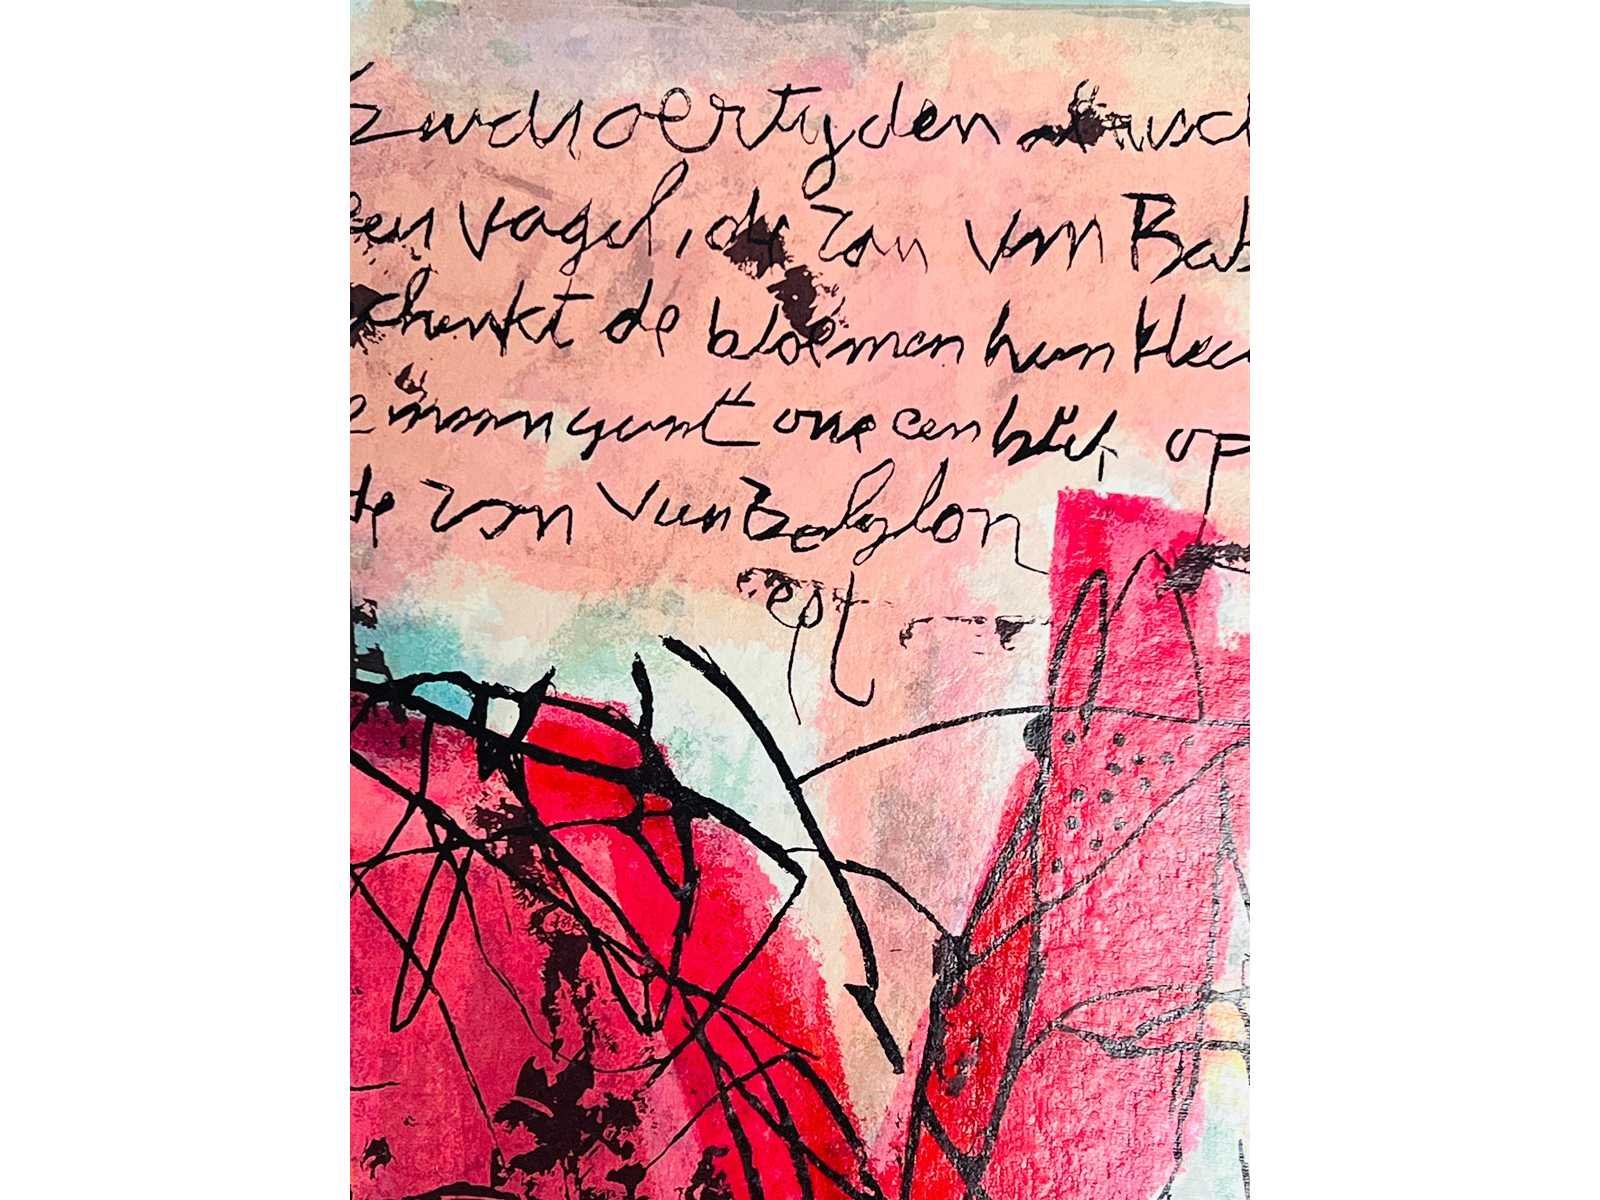 een vogel, de zon van Bab
schenkt de bloemen hun kleu
de maan gunt ons een blik op
de zon van Babylon